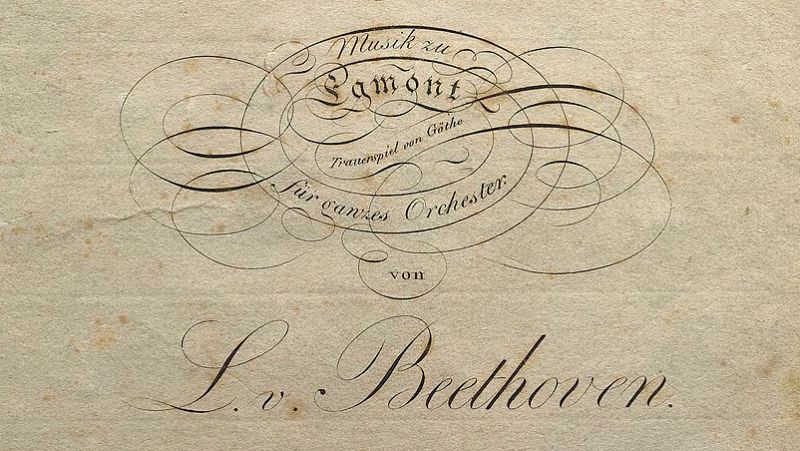 Musik zu
Egmont
Trauerspiel von Göthe
für ganzes Orchester.
von
L. v. Beethoven.